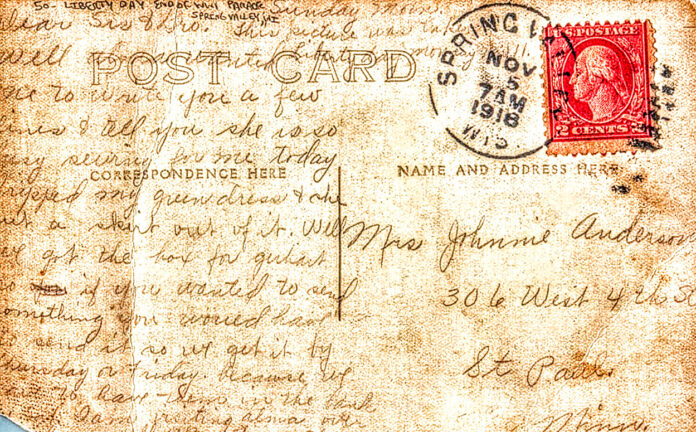 50- LIBERTY DAY END OF WWI PARADE
SPRING VALLEY, WI
Sunday morning
Dear Sis & Bro. This picture was
Well
POST CARD
me to write you a few
lines & tell you she is so
busy sewing for me today
ripped my green dress & she
cut a skirt out of it. Well
we got the box for
so if you wanted to send
something you would have
to send it so we get it by
Thursday or Friday because we
have to have them in the
am
over
CORRESPONDENCE HERE
NAME AND ADDRESS HERE
SPRING VALLEY
NOV
5
7 AM
1918
WIS
U.S. POSTAGE
2 CENTS 2
Mrs Johnnie Anderson
306 West 4th S
St Paul
Minn.